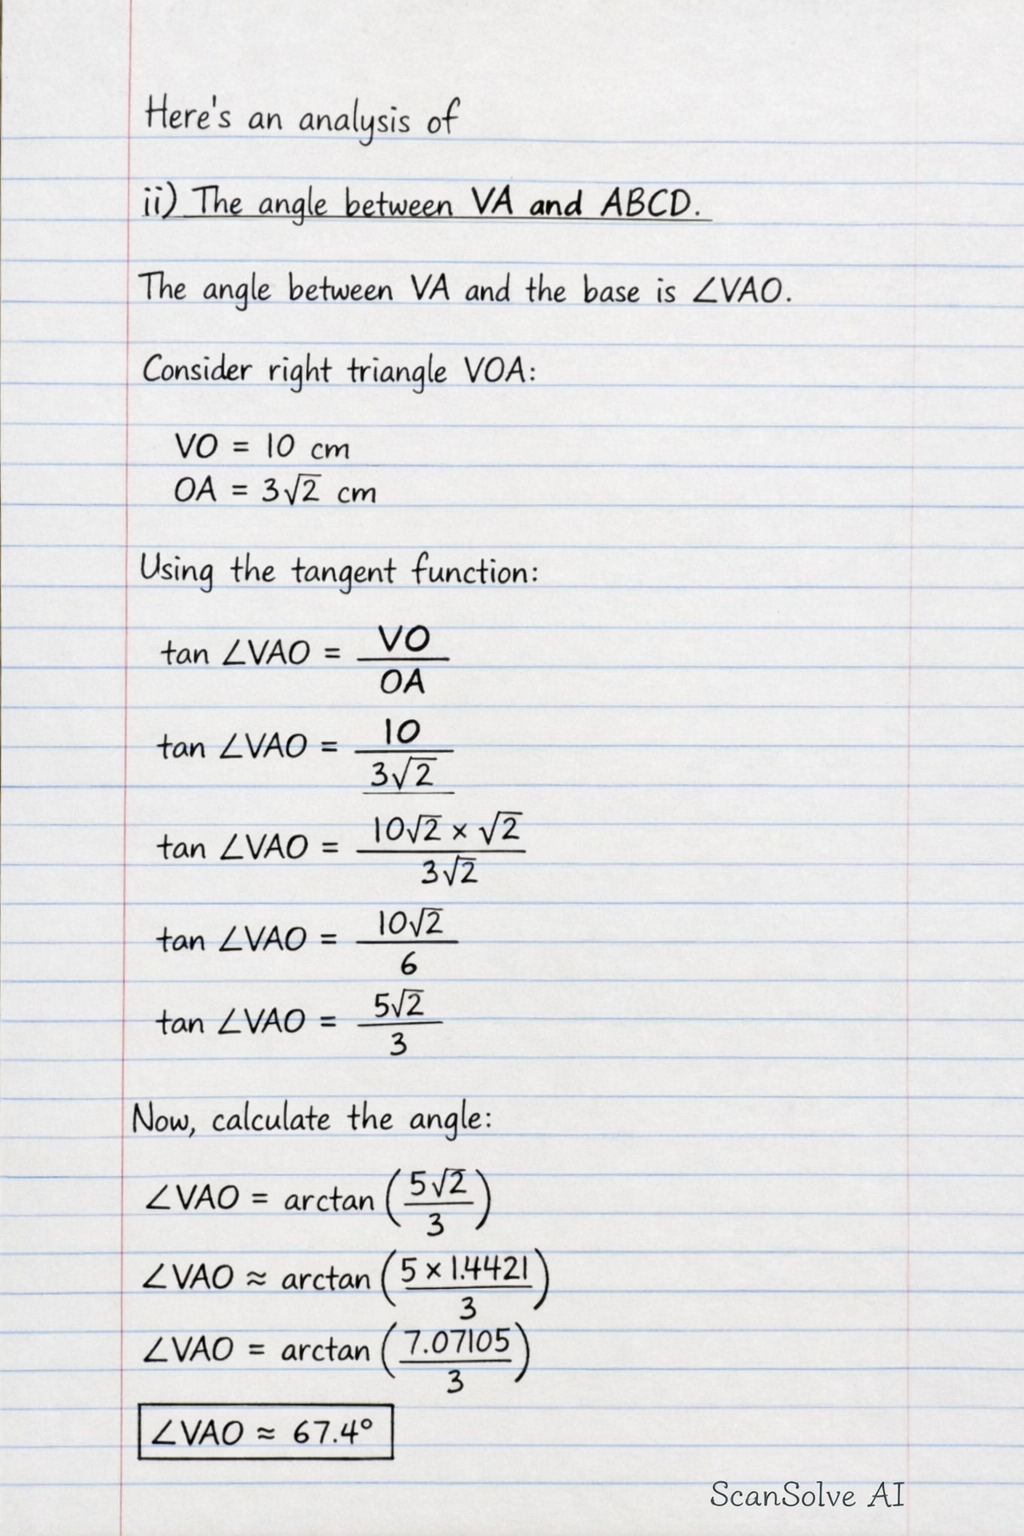 Here's an analysis of
ii) The angle between VA and ABCD.
The angle between VA and the base is ∠VAO.
Consider right triangle VOA:
VO = 10 cm
OA = 3√2 cm
Using the tangent function:
tan ∠VAO = VO / OA
tan ∠VAO = 10 / 3√2
tan ∠VAO = 10√2 × √2 / 3√2
tan ∠VAO = 10√2 / 6
tan ∠VAO = 5√2 / 3
Now, calculate the angle:
∠VAO = arctan (5√2 / 3)
∠VAO ≈ arctan (5 × 1.4421 / 3)
∠VAO = arctan (7.07105 / 3)
∠VAO ≈ 67.4°
ScanSolve AI